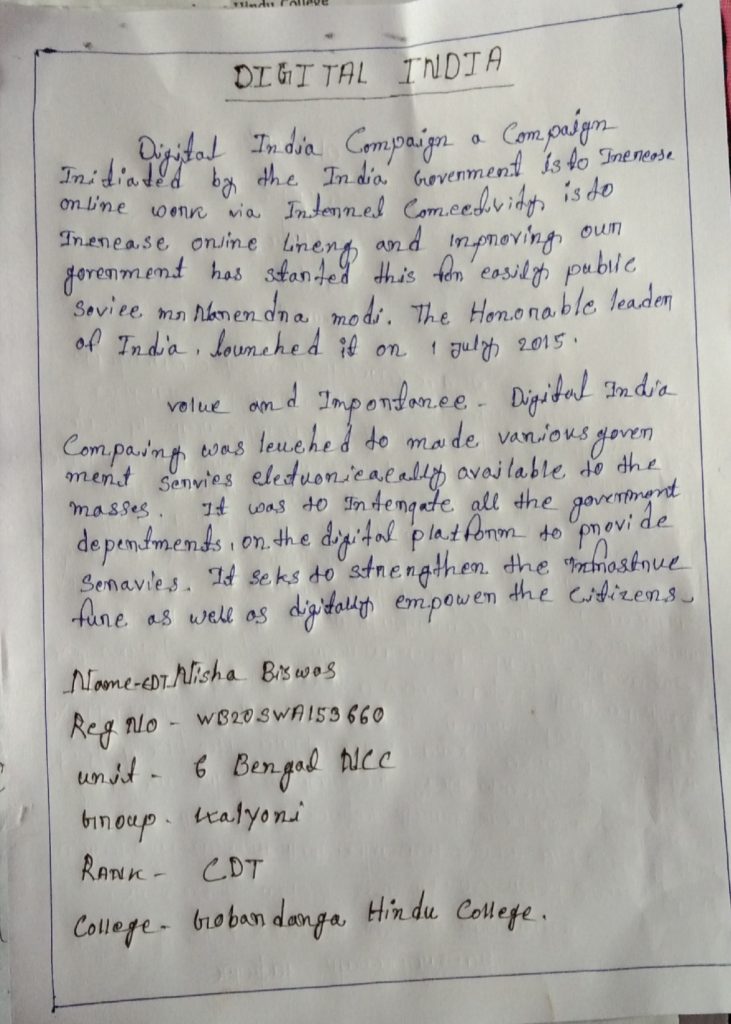 Hindu College
DIGITAL INDIA
Digital India Compaign a Compaign
Initiated by the India Govenment is to Inenease
online wonk via Intennet Comeedivity is to
Inenease online and inpnoving oun
govenment has stanted this fon easily public
Soviee mn Nanendna modi. The Hononable leaden
of India, lounched it on 1 July 2015.
value and Impontanee - Digital India
Compaing was leuched to made vanious goven
ment senvies available to the
masses. It was to Intengate all the government
dependments, on the digital platfonm to pnovide
Senavies. It seks to stnengthen the Infnastnue
tune as well as digitally empowen the Citizens.
Name-CDT Nisha Biswas
Reg No - WB20SWA153660
unit - 6 Bengal NCC
Gnoup - Kalyoni
RANK - CDT
College - Goban danga Hindu College.